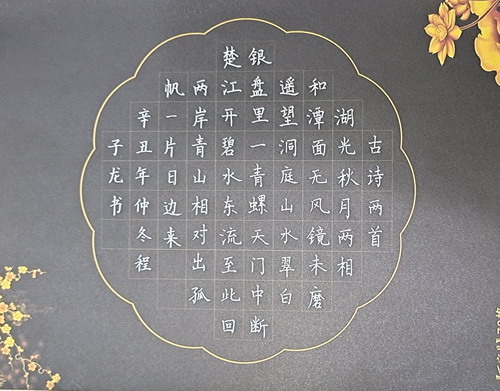 古诗两首
湖光秋月两相
和潭面无风镜未磨
遥望洞庭山水翠白
银盘里一青螺天门中断
楚江开碧水东流至此回
两岸青山相对出孤
帆一片日边来
辛丑年仲冬程
子龙书